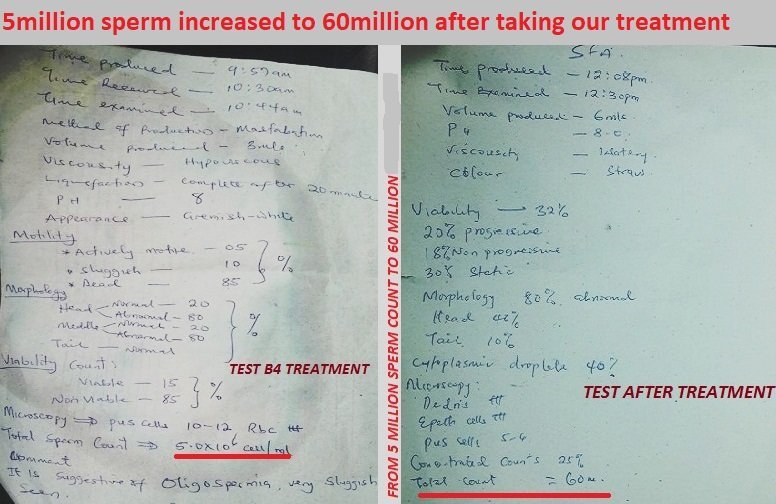 5million sperm increased to 60million after taking our treatment
Time produced — 9:57am
Time Received — 10:30am
Time examined — 10:44am
Method of Production - Masfabation
Volume produced - 3mls
Viscousity — Hypoviscous
Liquefaction — complete after 20 minute
PH — 8
Appearance — Cremish-white
Motility
* Actively motive - 05
* Sluggish — 10 %
* Dead — 85
Morphology
Head Normal — 20
Abnormal - 80
Middle Normal - 20 %
Abnormal - 80
Tail — Normal
Viability (count)
Viable — 15 %
Non Viable — 85
Microscopy ⇒ pus cells 10-12 Rbc
Total Sperm Count ⇒ 5.0x10⁶ cell/ml
Comment
It Is Suggestive of Oligospermia, very Sluggish
Seen.
TEST B4 TREATMENT
FROM 5 MILLION SPERM COUNT TO 60 MILLION
SFA.
Time produced - 12:08pm
Time Examined - 12:30pm
Volume produced - 6mls
PH - 8.0
Viscousity - Watery
Colour - Straw
Viability → 32%
progressive
18% Non progressive
30% Static
Morphology 80% abnormal
Head
Tail 10%
Cytoplasmic droplets 40%
Microscopy:
Debris
Epeth cells
pus cells 5-6
25%
Total Count = 60m.
TEST AFTER TREATMENT